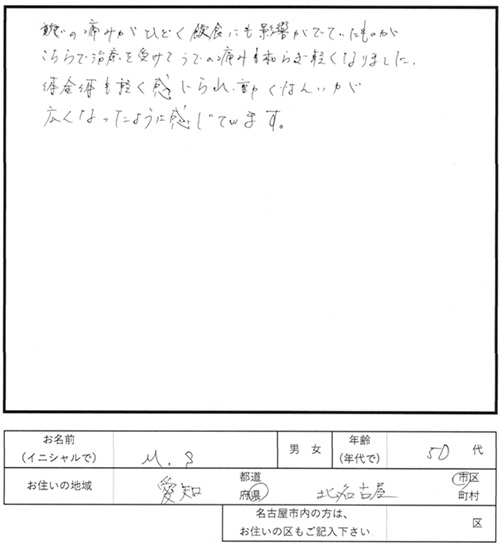 腕の痛みがひどく飲食にも影響がでていたものが
こちらで治療を受けてうでの痛みも和らぎ軽くなりました。
体全体も軽く感じられ、動くはんいが
広くなったように感じています。
お名前（イニシャルで） M.S 男 女 年齢（年代で） 50 代
お住いの地域 愛知 都道府県 北名古屋 市区町村
名古屋市内の方は、お住いの区もご記入下さい 区